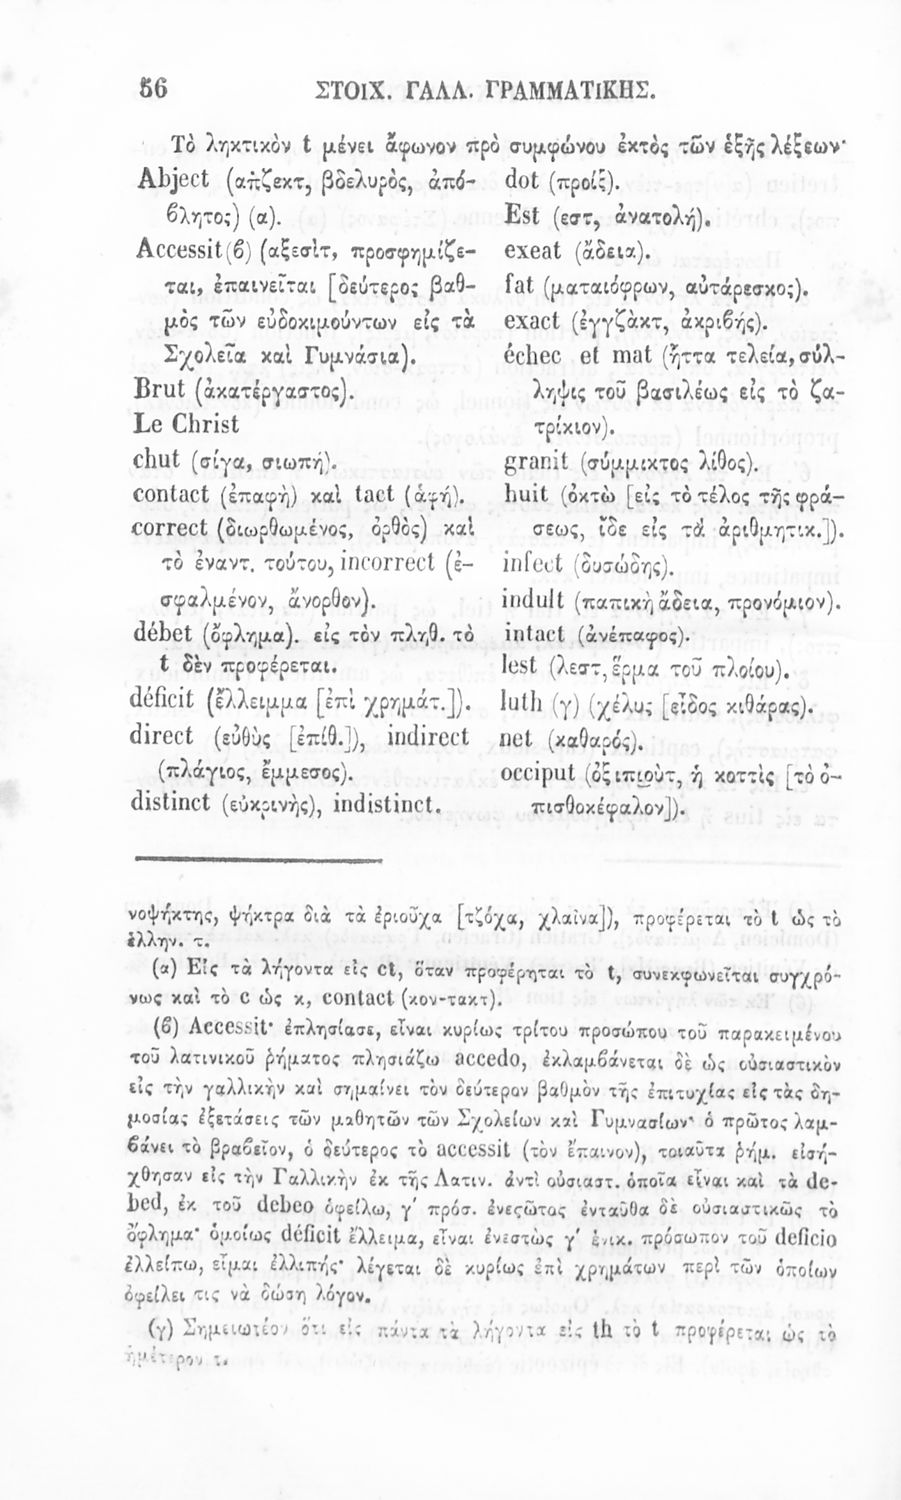 56 ΣΤΟΙΧ. ΓΑΛΛ. ΓΡΑΜΜΑΤΙΚΗΣ.
Τὸ ληκτικὸν t μένει ἄφωνον πρὸ συμφώνου ἐκτὸς τῶν ἑξῆς λέξεων·
Abject (απζεκτ, βδελυρὸς, ἀπό-
βλητος) (α).
Accessit (β) (αξεσὶτ, προσφημίζε-
ται, ἐπαινεῖται [δεύτερος βαθ-
μὸς τῶν εὐδοκιμούντων εἰς τὰ
Σχολεῖα καὶ Γυμνάσια).
Brut (ἀκατέργαστος).
Le Christ
chut (σίγα, σιωπή).
contact (ἐπαφὴ) καὶ tact (ἁφή).
correct (διωρθωμένος, ὀρθὸς) καὶ
τὸ ἐναντ. τούτου, incorrect (ἐ-
σφαλμένον, ἄνορθον).
débet (ὄφλημα). εἰς τὸν πληθ. τὸ
t δὲν προφέρεται.
déficit (ἔλλειμμα [ἐπὶ χρημάτ.]).
direct (εὐθὺς [ἐπίθ.]), indirect
(πλάγιος, ἔμμεσος).
distinct (εὐκρινὴς), indistinct.
dot (προίξ).
Est (εστ, ἀνατολή).
exeat (ἄδεια).
fat (ματαιόφρων, αὐτάρεσκος).
exact (ἐγγζὰκτ, ἀκριβής).
échec et mat (ἧττα τελεία, σύλ-
ληψις τοῦ βασιλέως εἰς τὸ ζα-
τρίκιον).
granit (σύμμικτος λίθος).
huit (ὀκτὼ [εἰς τὸ τέλος τῆς φρά-
σεως, ἴδε εἰς τὰ ἀριθμητικ.]).
infect (δυσώδης).
indult (παπικὴ ἄδεια, προνόμιον).
intact (ἀνέπαφος).
lest (λεστ, ἕρμα τοῦ πλοίου).
luth (γ) (χέλυς [εἶδος κιθάρας).
net (καθαρός).
occiput (ὀξιπιοὺτ, ἡ κοττὶς [τὸ ὀ-
πισθοκέφαλον]).
νοψήκτης, ψήκτρα διὰ τὰ ἐριοῦχα [τζόχα, χλαῖνα]), προφέρεται τὸ t ὡς τὸ
ἑλλην. τ.
(α) Εἰς τὰ λήγοντα εἰς ct, ὅταν προφέρηται τὸ t, συνεκφωνεῖται συγχρό-
νως καὶ τὸ c ὡς κ, contact (κον-τακτ).
(β) Accessit· ἐπλησίασε, εἶναι κυρίως τρίτου προσώπου τοῦ παρακειμένου
τοῦ λατινικοῦ ῥήματος πλησιάζω accedo, ἐκλαμβάνεται δὲ ὡς οὐσιαστικὸν
εἰς τὴν γαλλικὴν καὶ σημαίνει τὸν δεύτερον βαθμὸν τῆς ἐπιτυχίας εἰς τὰς δη-
μοσίας ἐξετάσεις τῶν μαθητῶν τῶν Σχολείων καὶ Γυμνασίων· ὁ πρῶτος λαμ-
βάνει τὸ βραβεῖον, ὁ δεύτερος τὸ accessit (τὸν ἔπαινον), τοιαῦτα ῥήμ. εἰσή-
χθησαν εἰς τὴν Γαλλικὴν ἐκ τῆς Λατιν. ἀντὶ οὐσιαστ. ὁποῖα εἶναι καὶ τὰ de-
bed, ἐκ τοῦ debeo ὀφείλω, γ΄ πρόσ. ἐνεςῶτος ἐνταῦθα δὲ οὐσιαστικῶς τὸ
ὄφλημα· ὁμοίως déficit ἔλλειμα, εἶναι ἐνεστὼς γ΄ ἑνικ. πρόσωπον τοῦ deficio
ἐλλείπω, εἶμαι ἐλλιπής· λέγεται δὲ κυρίως ἐπὶ χρημάτων περὶ τῶν ὁποίων
ὀφείλει τις νὰ δώσῃ λόγον.
(γ) Σημειωτέον ὅτι εἰς πάντα τὰ λήγοντα εἰς th τὸ t προφέρεται ὡς τὸ
ἡμέτερον τ.